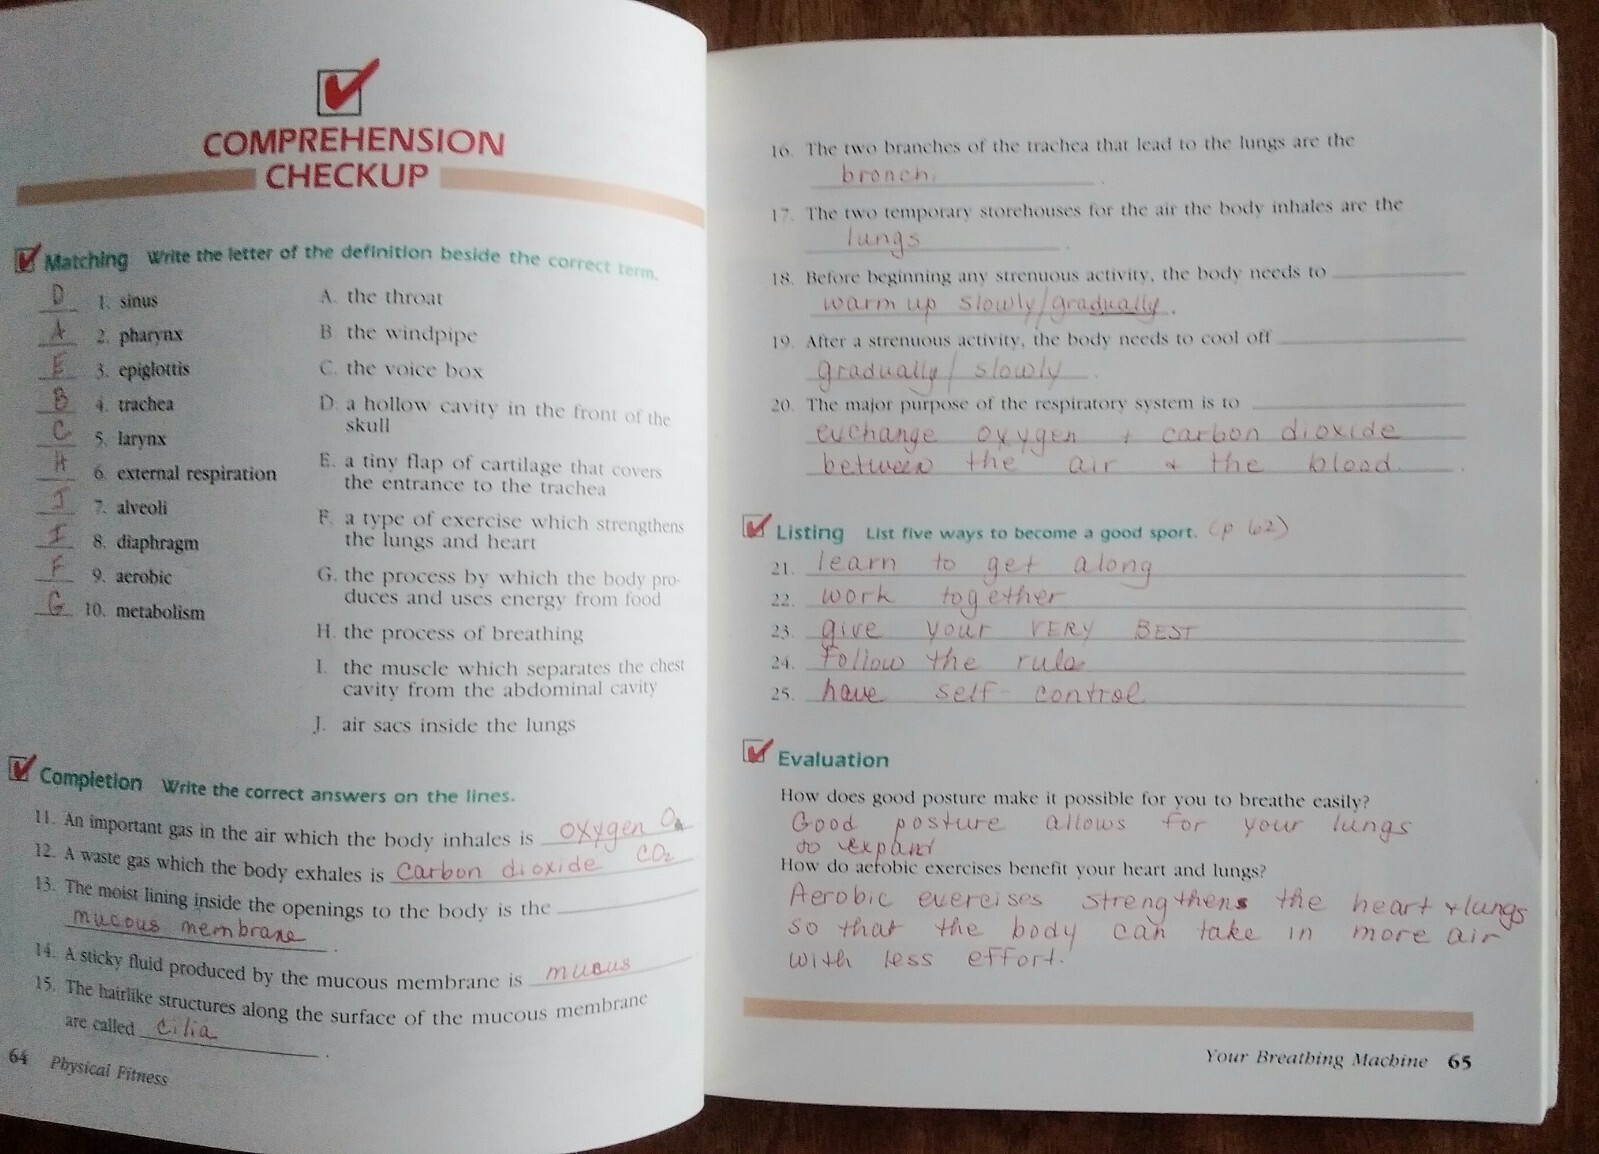 COMPREHENSION
CHECKUP
Matching Write the letter of the definition beside the correct term.
D 1. sinus
A 2. pharynx
E 3. epiglottis
B 4. trachea
C 5. larynx
H 6. external respiration
J 7. alveoli
I 8. diaphragm
F 9. aerobic
G 10. metabolism
A. the throat
B. the windpipe
C. the voice box
D. a hollow cavity in the front of the
skull
E. a tiny flap of cartilage that covers
the entrance to the trachea
F. a type of exercise which strengthens
the lungs and heart
G. the process by which the body pro-
duces and uses energy from food
H. the process of breathing
I. the muscle which separates the chest
cavity from the abdominal cavity
J. air sacs inside the lungs
Completion Write the correct answers on the lines.
11. An important gas in the air which the body inhales is oxygen O₂
12. A waste gas which the body exhales is carbon dioxide CO₂
13. The moist lining inside the openings to the body is the
mucous membrane.
14. A sticky fluid produced by the mucous membrane is mucus
15. The hairlike structures along the surface of the mucous membrane
are called cilia.
64 Physical Fitness
16. The two branches of the trachea that lead to the lungs are the
bronchi.
17. The two temporary storehouses for the air the body inhales are the
lungs.
18. Before beginning any strenuous activity, the body needs to
warm up slowly/gradually.
19. After a strenuous activity, the body needs to cool off
gradually/slowly.
20. The major purpose of the respiratory system is to
exchange oxygen + carbon dioxide
between the air + the blood.
Listing List five ways to become a good sport. (p 62)
21. learn to get along
22. work together
23. give your VERY BEST
24. Follow the rules
25. have self-control
Evaluation
How does good posture make it possible for you to breathe easily?
Good posture allows for your lungs
to expand
How do aerobic exercises benefit your heart and lungs?
Aerobic exercises strengthens the heart + lungs
so that the body can take in more air
with less effort.
Your Breathing Machine 65